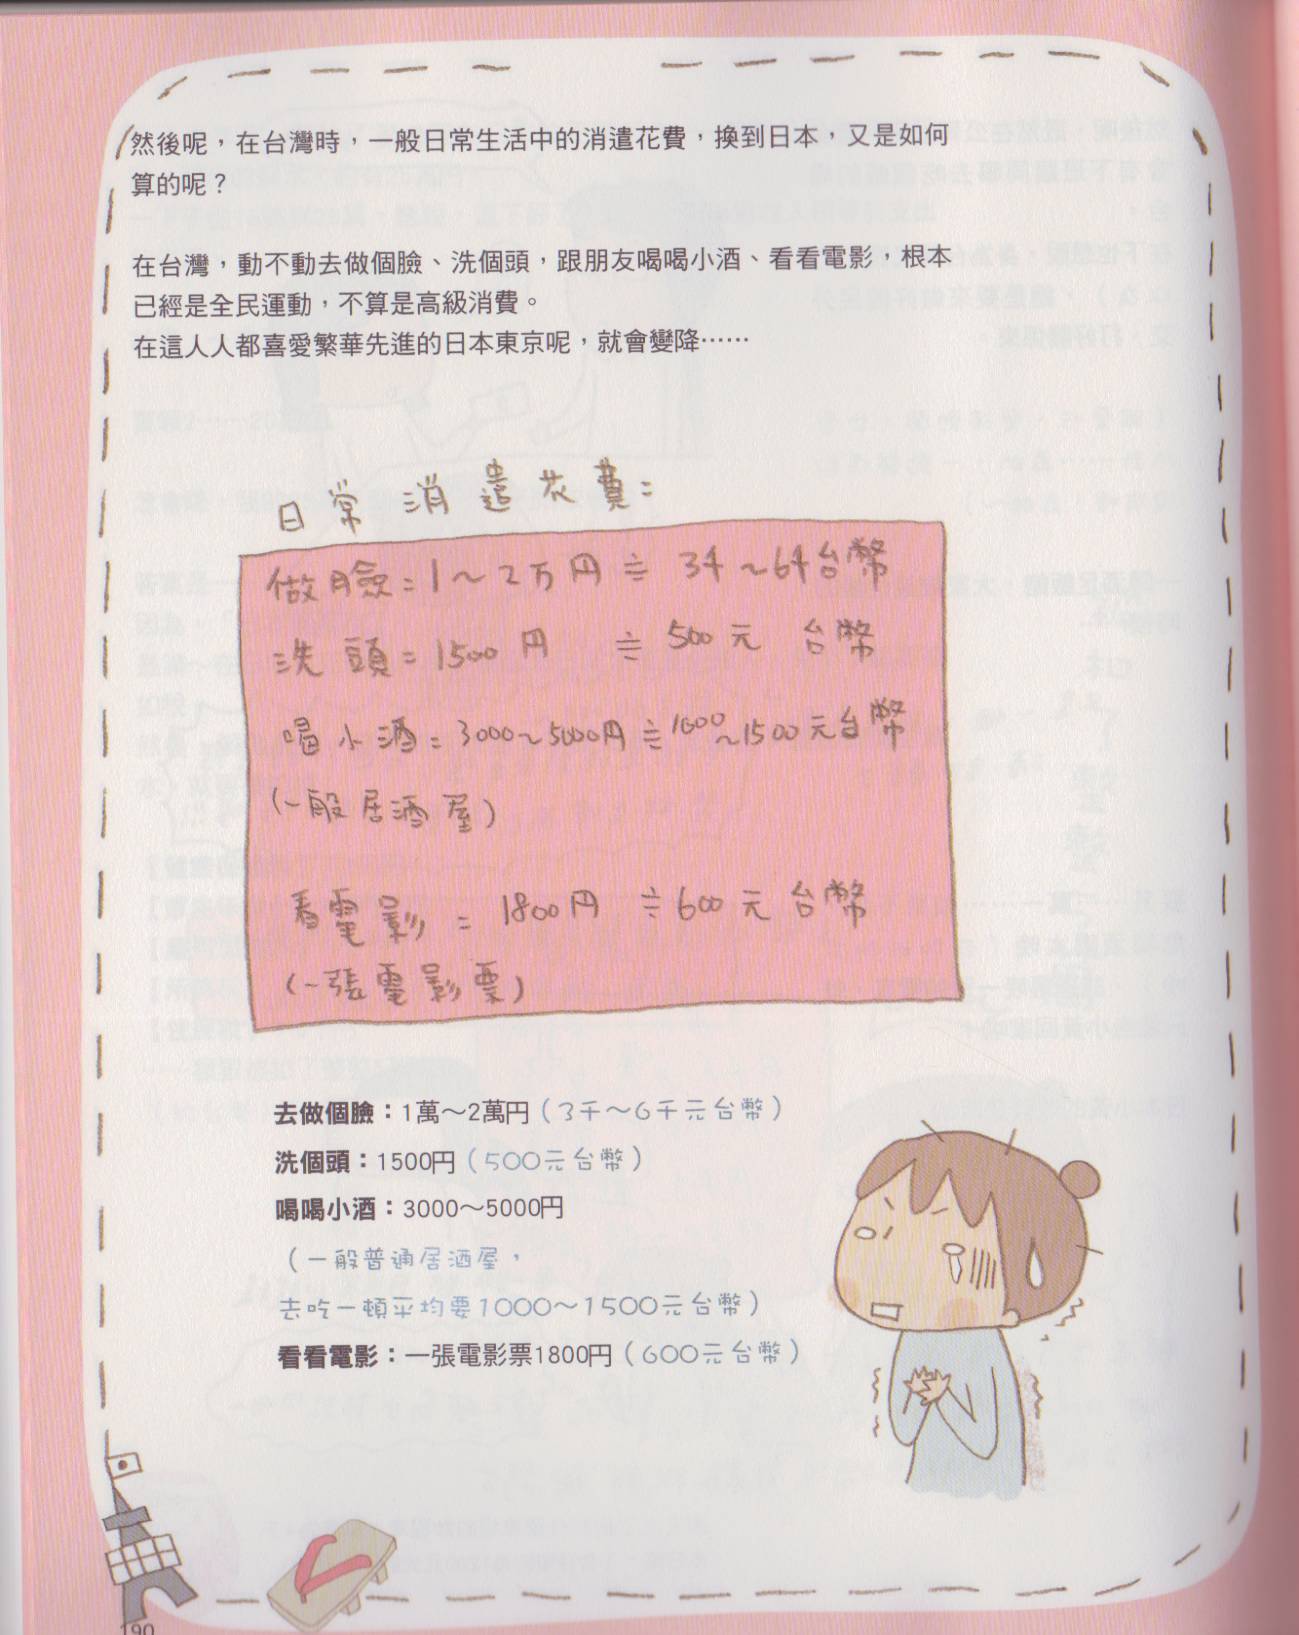 然後呢，在台灣時，一般日常生活中的消遣花費，換到日本，又是如何
算的呢？
在台灣，動不動去做個臉、洗個頭，跟朋友喝喝小酒、看看電影，根本
已經是全民運動，不算是高級消費。
在這人人都喜愛繁華先進的日本東京呢，就會變降⋯⋯
日常消遣花費：
做臉＝1～2万円≒3千～6千台幣
洗頭＝1500円 ≒500元 台幣
喝小酒＝3000～5000円≒1000～1500元台幣
（一般居酒屋）
看電影＝1800円≒600元台幣
（一張電影票）
去做個臉：1萬～2萬円（3千～6千元台幣）
洗個頭：1500円（500元台幣）
喝喝小酒：3000～5000円
（一般普通居酒屋，
去吃一頓平均要1000～1500元台幣）
看看電影：一張電影票1800円（600元台幣）
190